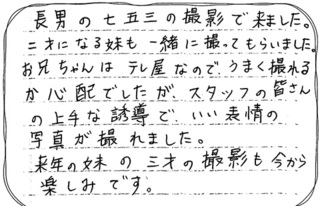 長男の七五三の撮影で来ました。
二才になる妹も一緒に撮ってもらいました。
お兄ちゃんはテレ屋なので、うまく撮れる
か心配でしたが、スタッフの皆さん
の上手な誘導で、いい表情の
写真が撮れました。
来年の妹の三才の撮影も今から
楽しみです。